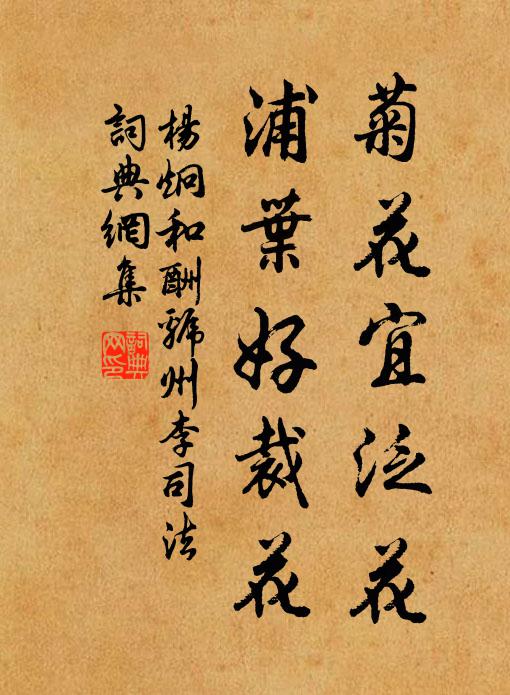 菊花宜泛花
浦葉好裁花
楊炯和酬虢州李司法
詞典網集
詞典網印